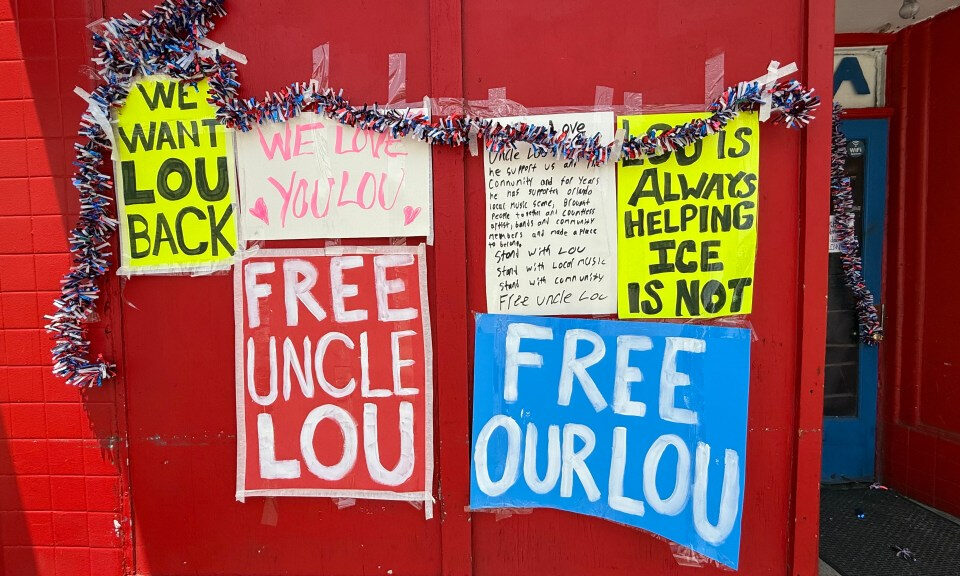 WE
WANT
LOU
BACK
WE LOVE
YOU LOU
Love
Uncle Lou
he support us and the
Community and for Years
he has supported orlando
local music scene, Brought
People together and countless
artist, bands and community
members and made a place
to belong.
Stand with Lou
Stand with Local music
Stand with community
Free uncle Lou
LOU IS
ALWAYS
HELPING
ICE
IS NOT
FREE
UNCLE
LOU
FREE
OUR LOU
A
WiFi